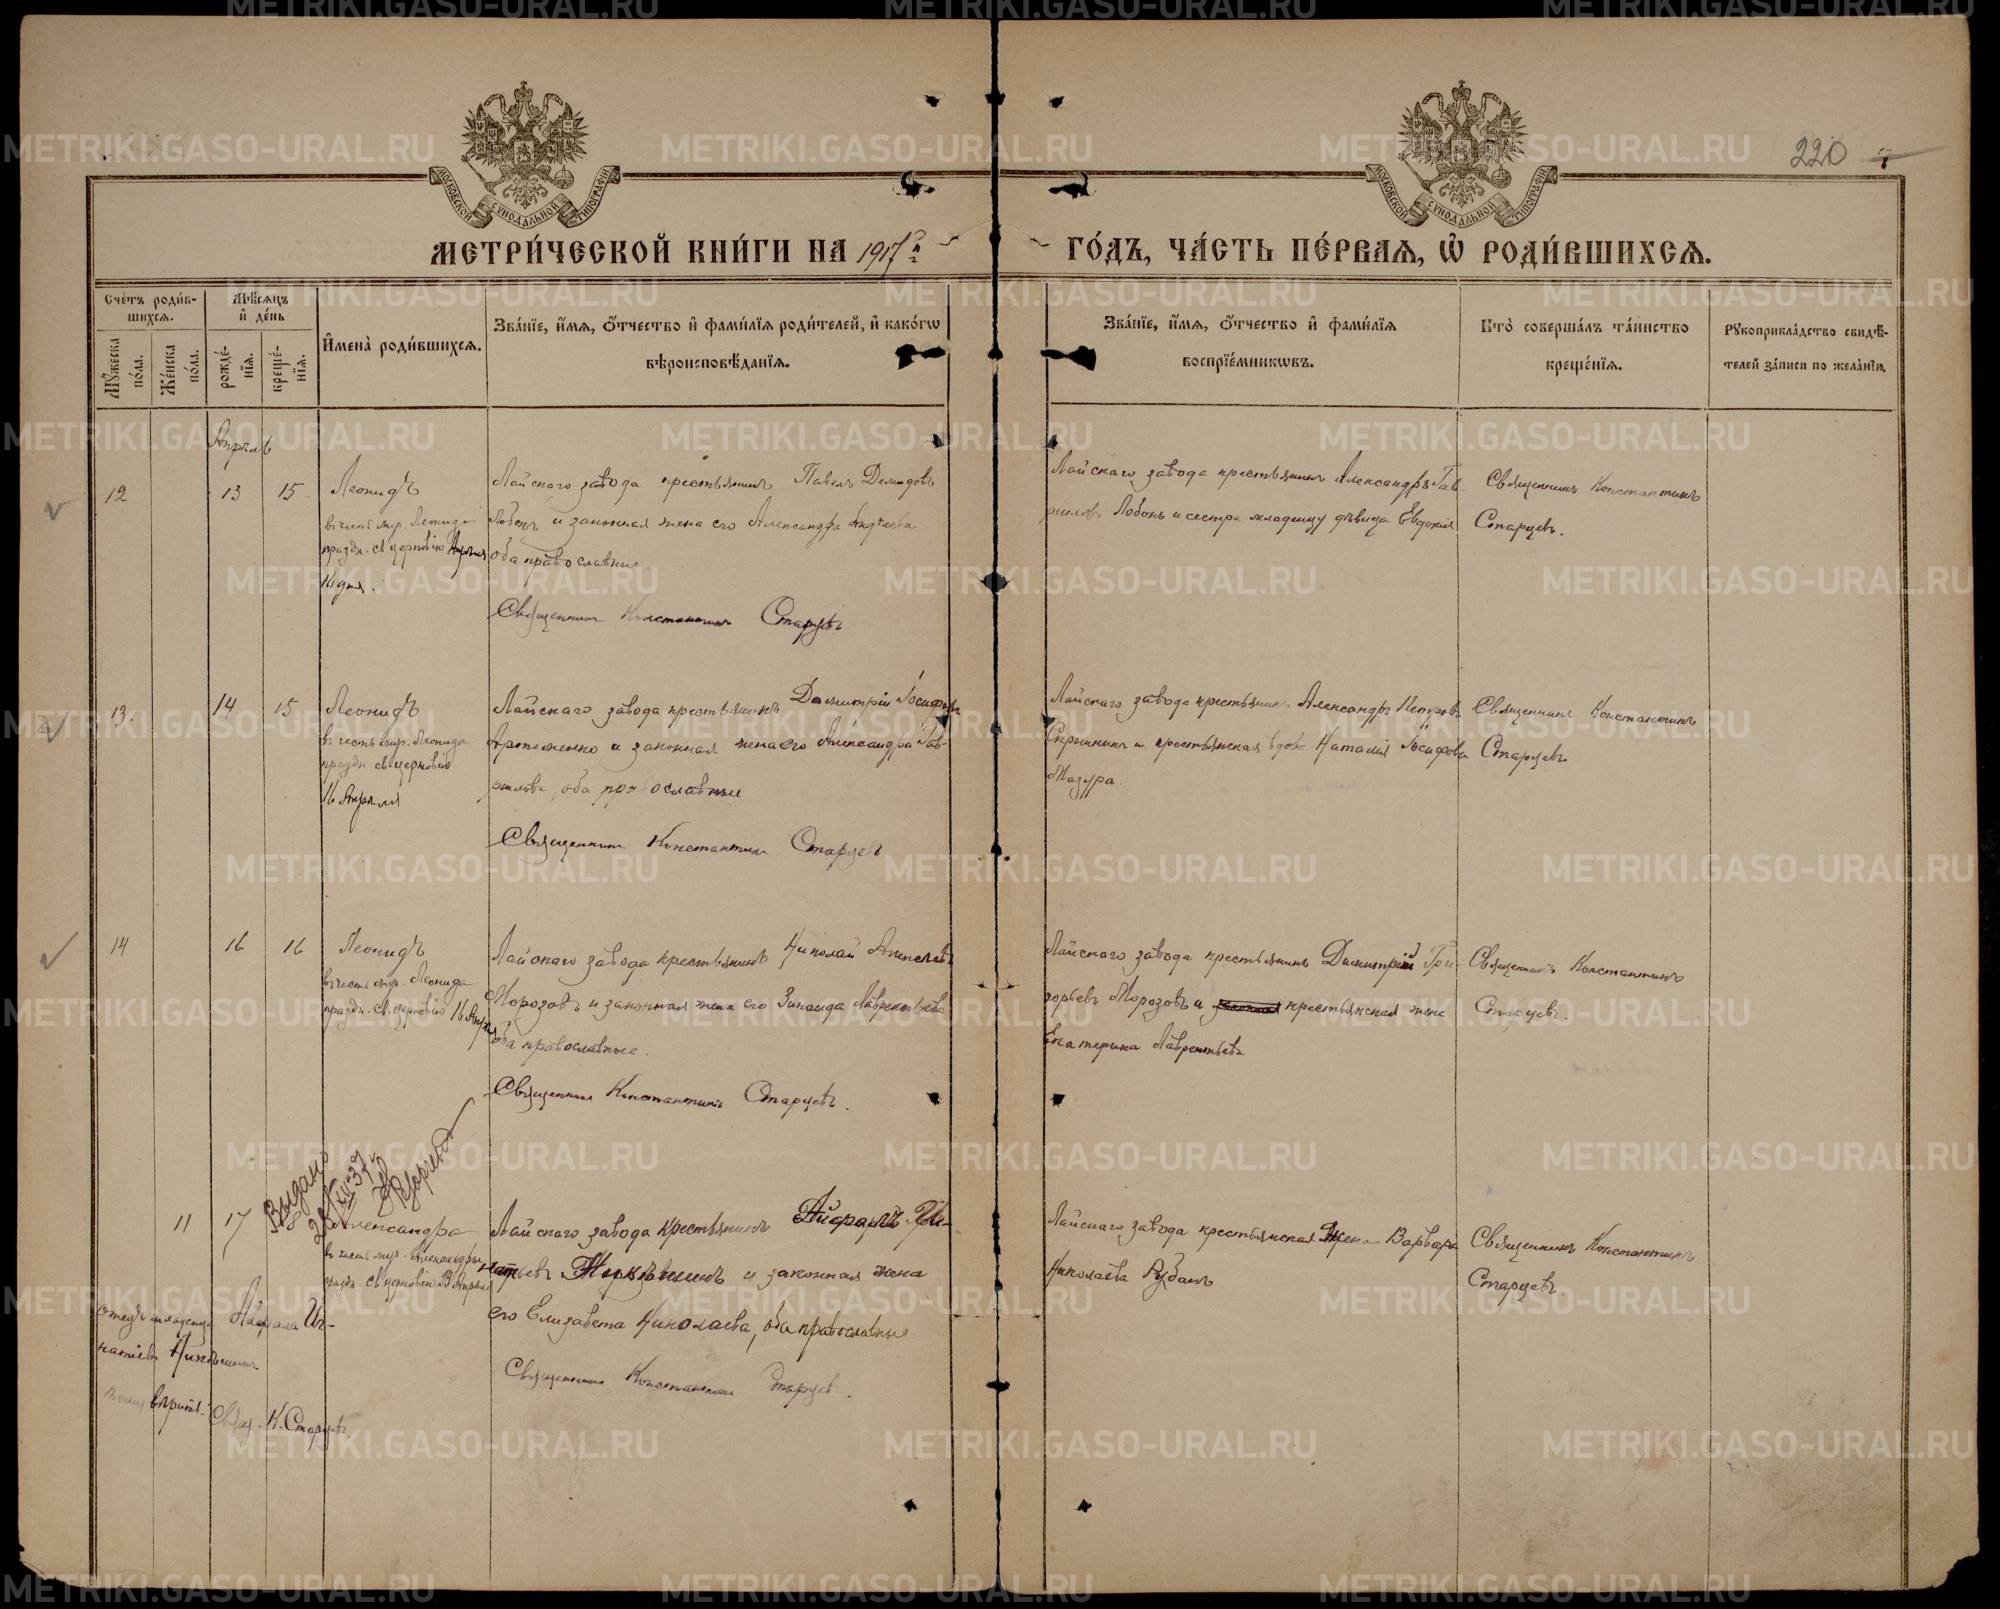 220
МОСКОВСКОЙ СѴНОДАЛЬНОЙ ТИПОГРАФІИ
МОСКОВСКОЙ СѴНОДАЛЬНОЙ ТИПОГРАФІИ
МЕТРИ́ЧЕСКОЙ КНИ́ГИ НА 1917 ГО́ДЪ, ЧА́СТЬ ПЕ́РВАѦ, Ѡ҆ РОДИ́ВШИХСѦ.
Сче́тъ роди́в-
шихсѧ.
Мѣ́сѧцъ
и҆ де́нь
Мꙋ́жеска
по́ла.
Же́нска
по́ла.
рожде́-
нїѧ.
креще́-
нїѧ.
И҆мена̀ роди́вшихсѧ.
Зва́нїе, и҆́мѧ, ѻ҆́тчество и҆ фами́лїѧ роди́телей, и҆ како́гѡ
вѣроисповѣ́данїѧ.
Зва́нїе, и҆́мѧ, ѻ҆́тчество и҆ фами́лїѧ
воспрїе́мникѡвъ.
Кто̀ соверша́лъ та́инство
креще́нїѧ.
Рꙋкоприкла́дство свидѣ́-
телей за́писи по жела́нїю.
Апрѣль
12
13
15
Леонидъ
въ честь муч. Леонида
праздн. св. церковію Апрѣля
16 дня.
Лайскаго завода крестьянинъ Павелъ Демидовъ
Лобонъ и законная жена его Александра
оба православные.
Священникъ Константинъ Старцевъ
Лайскаго завода крестьянинъ Александръ Гав-
риловъ Лобонь и сестра младенцу дѣвица Евдокія
Священникъ Константинъ
Старцевъ.
13.
14
15
Леонидъ
въ честь муч. Леонида
праздн. св. церковію
16 Апрѣля
Лайскаго завода крестьянинъ Димитрій Іосифовъ
Артеменко и законная жена его Александра Гав-
рилова, оба православные
Священникъ Константинъ Старцевъ
Лайскаго завода крестьянинъ Александръ Петровъ
Скрынникъ и крестьянская вдова Наталія Іосифова
Мазура.
Священникъ Константинъ
Старцевъ
14
16
16
Леонидъ
въ честь муч. Леонида
праздн. св. церковію 16 Апрѣля
Лайскаго завода крестьянинъ Николай Алексѣевъ
Морозовъ и законная жена его Зинаида Лаврентьева
оба православные.
Священникъ Константинъ Старцевъ.
Лайскаго завода крестьянинъ Димитрій Гри-
горьевъ Морозовъ и крестьянская жена
Екатерина Лаврентьева
Священникъ Константинъ
Старцевъ.
Выдано
28/XII-37 г.
11
17
Александра
въ честь муч. Александры
праздн. св. церковію 23 Апрѣля
Лайскаго завода крестьянинъ Айфалъ Иг-
натьевъ Никѣшинъ и законная жена
его Елизавета Николаева, оба православные
Священникъ Константинъ Старцевъ.
Лайскаго завода крестьянская жена Варвара
Николаева Рубанъ
Священникъ Константинъ
Старцевъ.
отецъ младенца Айфала Иг-
натіевъ Никѣшинъ
вѣрить. Свящ. К. Старцевъ.
METRIKI.GASO-URAL.RU